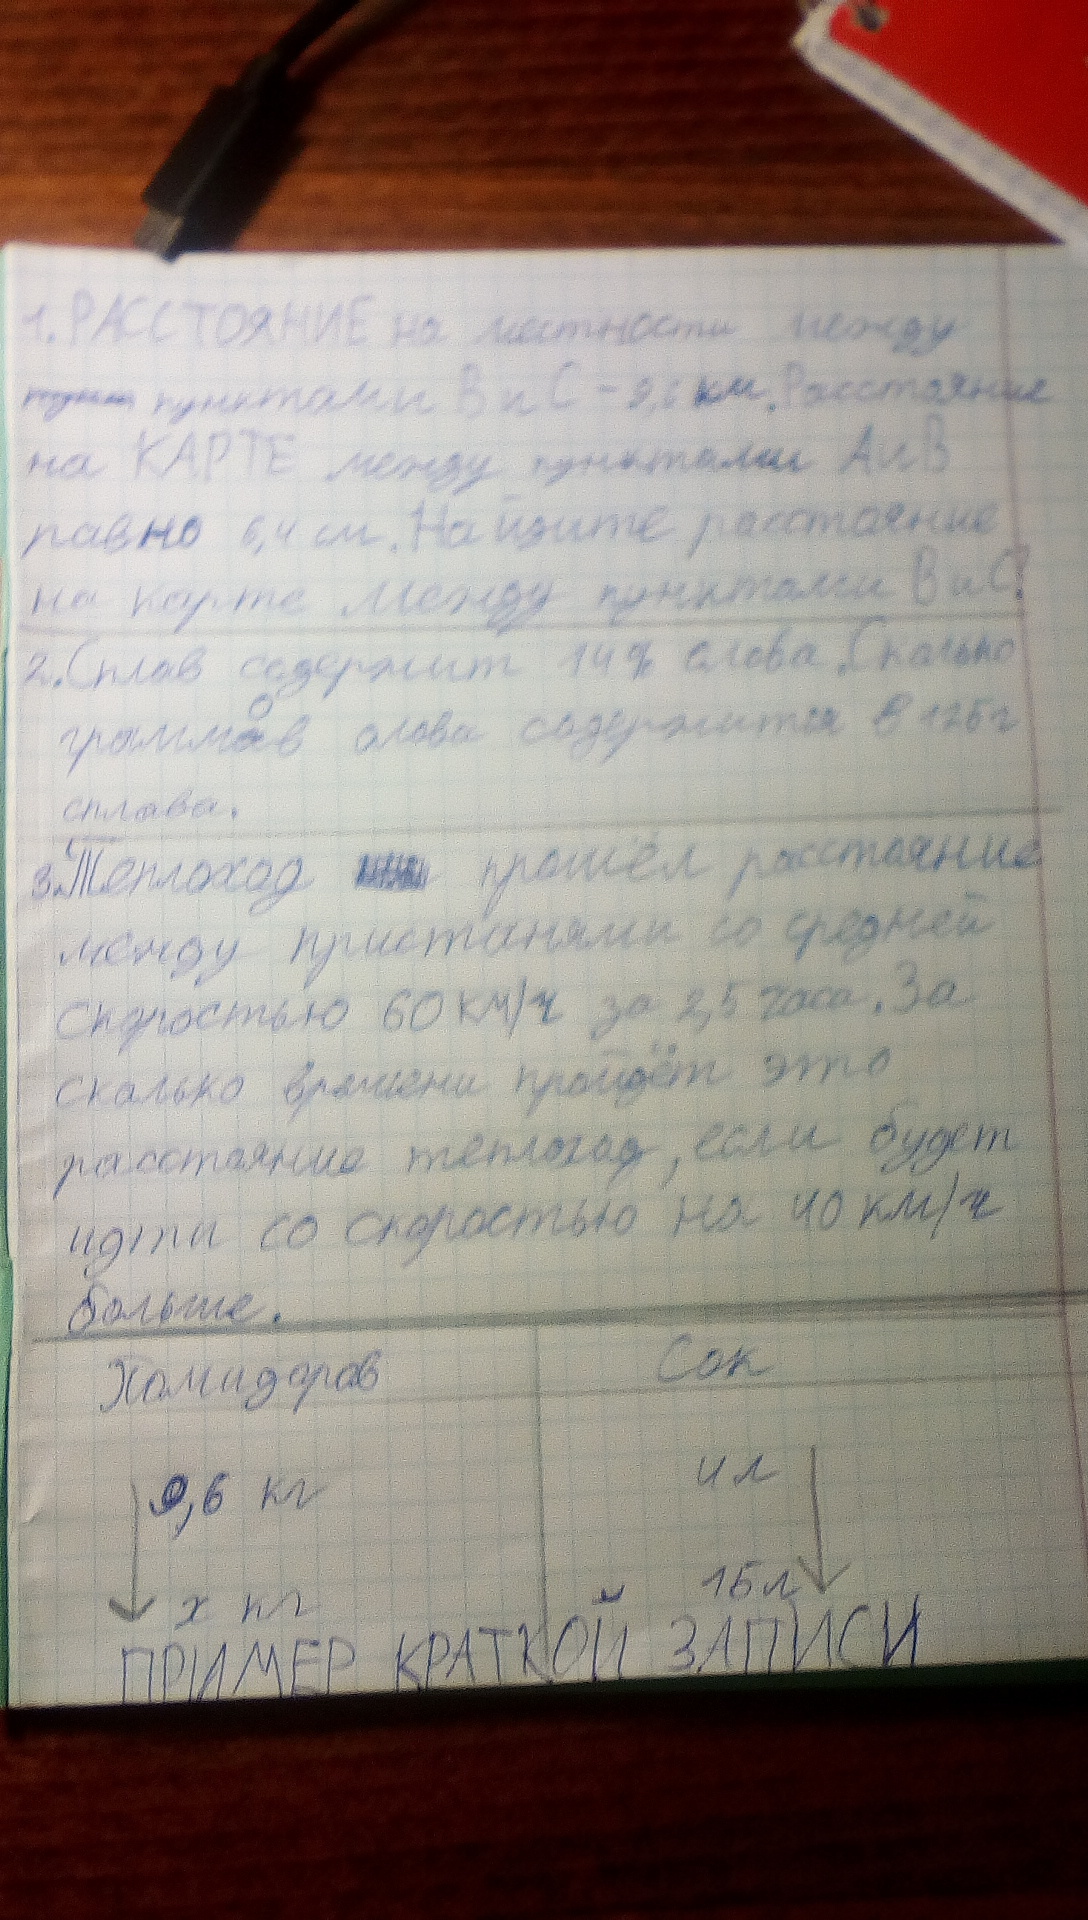 1. РАССТОЯНИЕ на местности между
пунктами В и С - 9,6 км. Расстояние
на КАРТЕ между пунктами А и В
равно 6,4 см. Найдите расстояние
на карте между пунктами В и С?
2. Сплав содержит 14% олова. Сколько
граммов олова содержится в 125 г
сплава.
3. Теплоход прошёл расстояние
между пристанями со средней
скоростью 60 км/ч за 2,5 часа. За
сколько времени пройдёт это
расстояние теплоход, если будет
идти со скоростью на 40 км/ч
больше.
Помидоров Сок
9,6 кг 4 л
х кг 15 л
ПРИМЕР КРАТКОЙ ЗАПИСИ